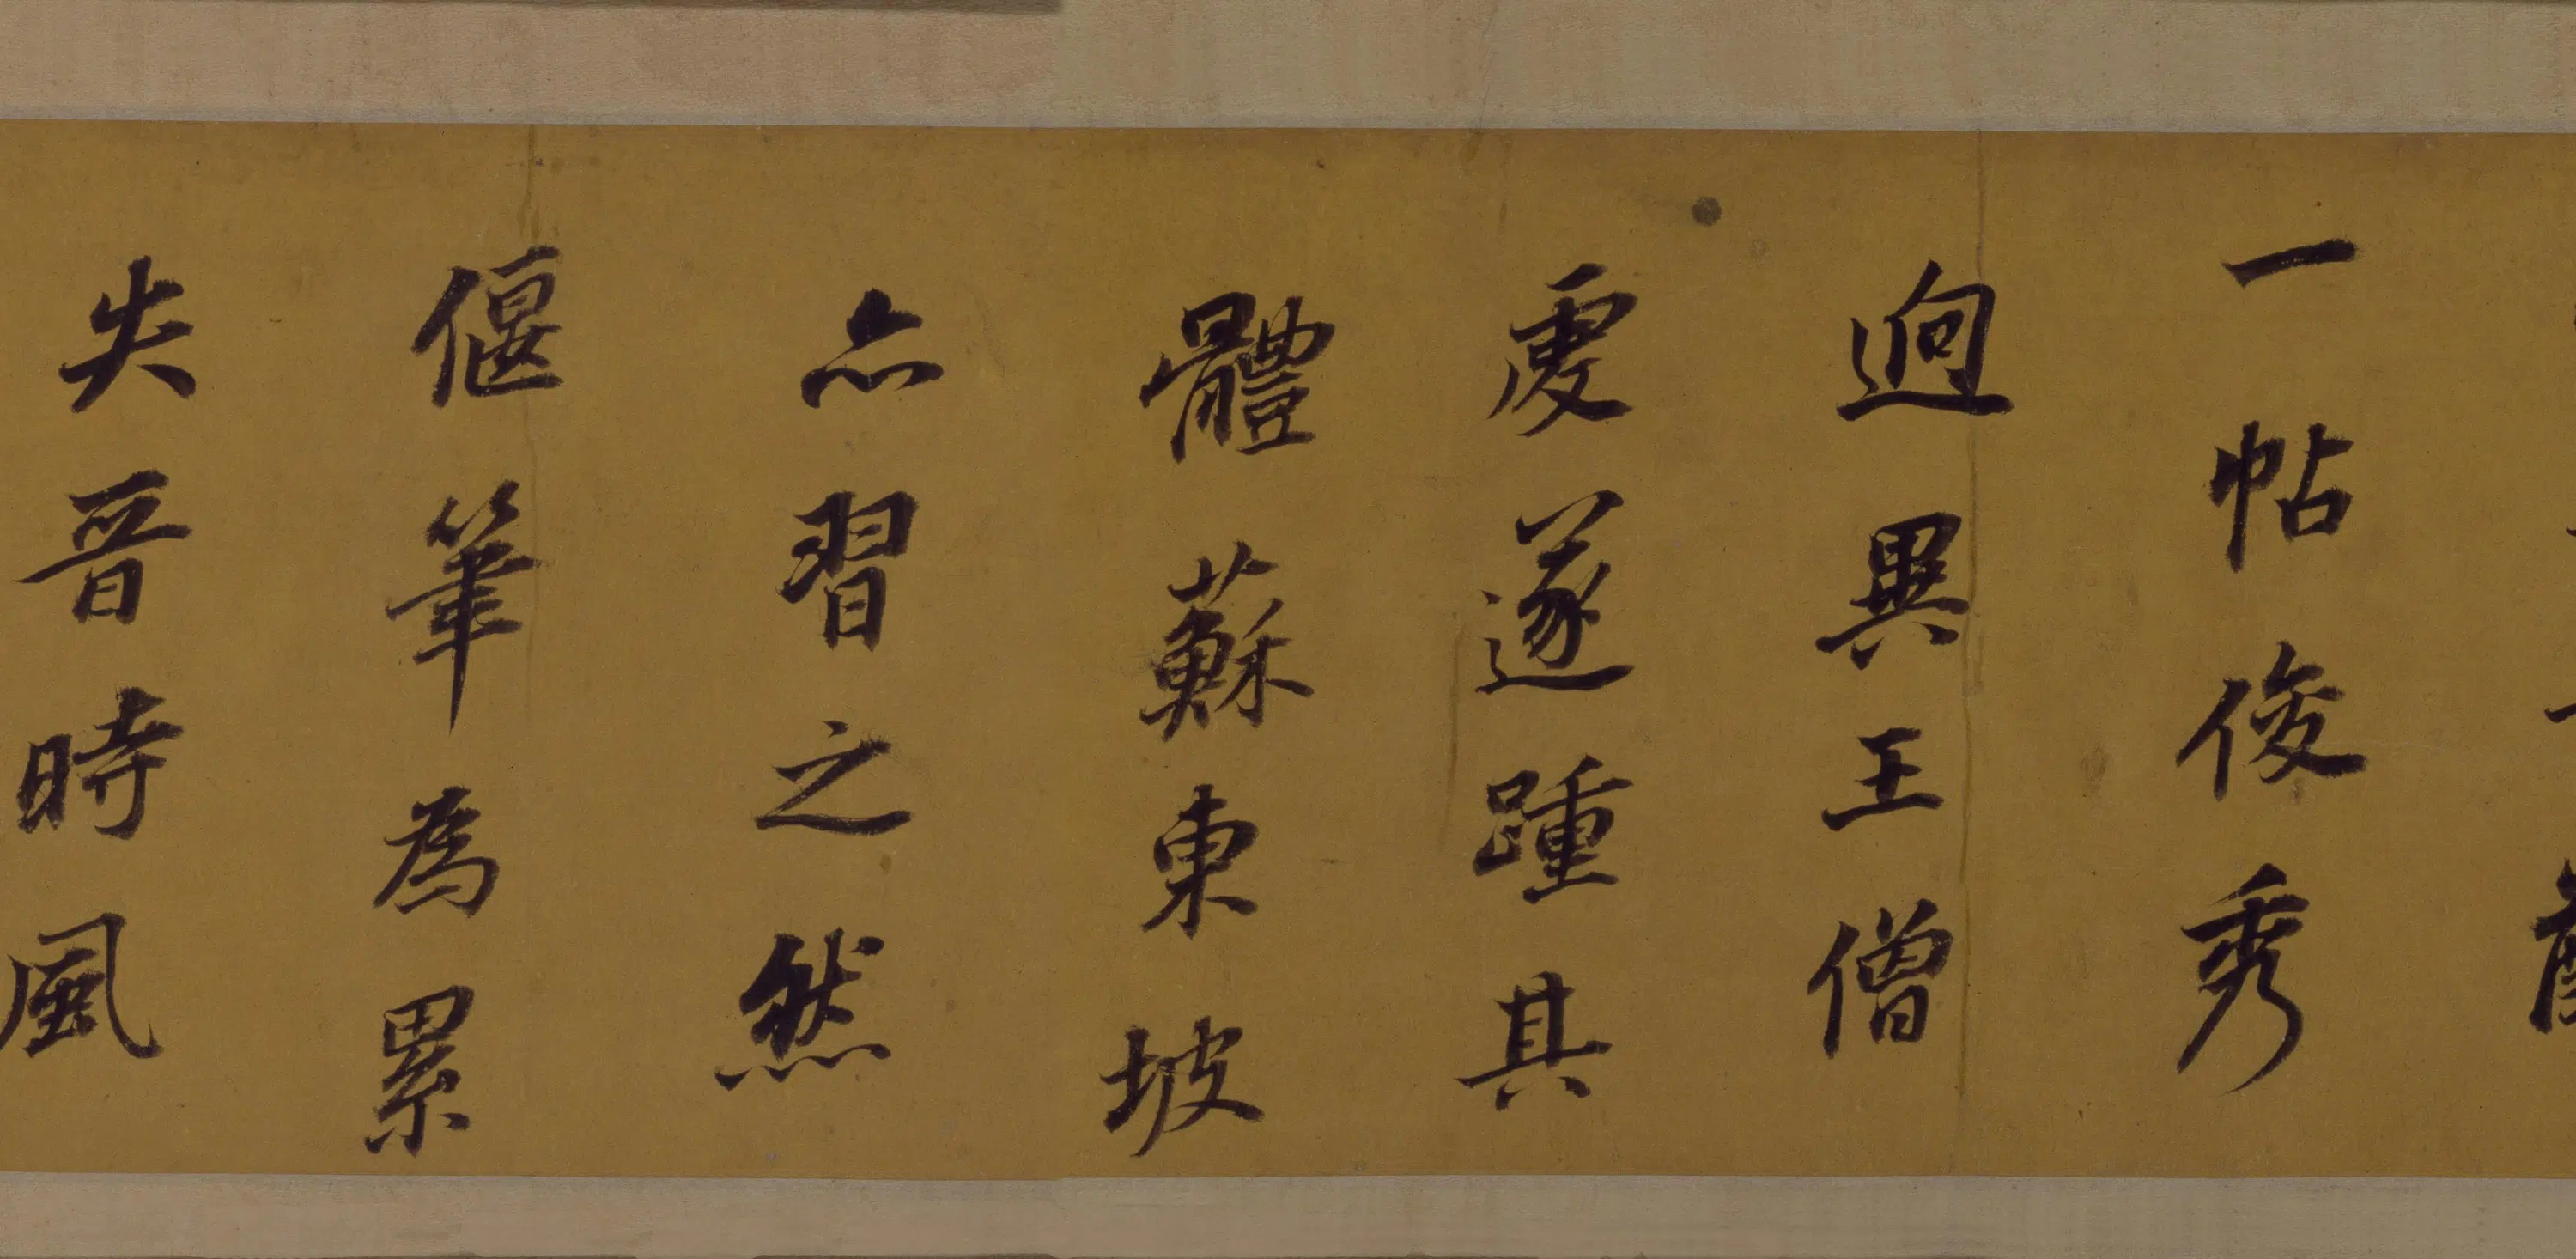 一帖俊秀
逈異王僧
虔遂踵其
體蘇東坡
亦習之然
偃筆為累
失晉時風